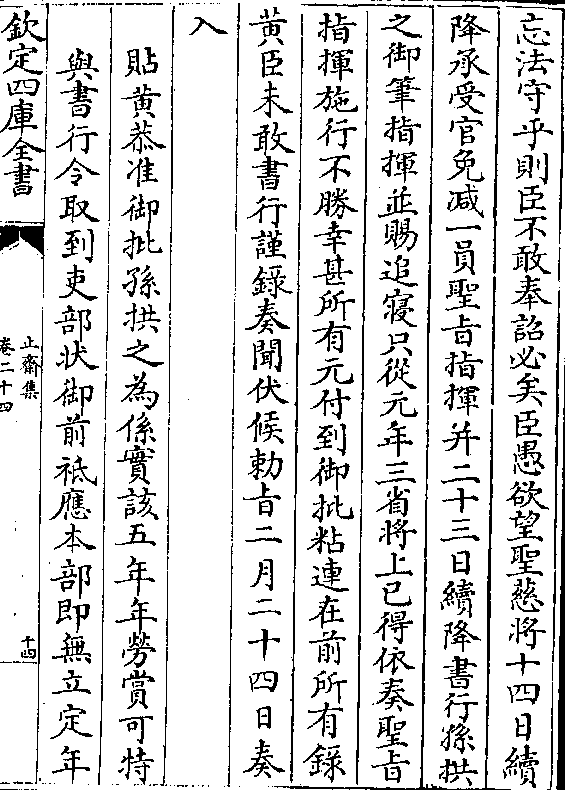 忘法守乎則臣不敢奉詔必矣臣愚欲望聖慈將十四日續
降承受官免减一員聖旨指揮并二十三日續降書行孫拱
之御筆指揮並賜追寢只從元年三省將上已得依奏聖旨
指揮施行不勝幸甚所有元付到御批粘連在前所有錄
黄臣未敢書行謹錄奏聞伏候勅旨二月二十四日奏
入
貼黄恭准御批孫拱之為係實該五年年勞賞可特
與書行令取到吏部状御前祗應本部即無立定年
欽定四庫全書
止齋集
卷二十四
十四